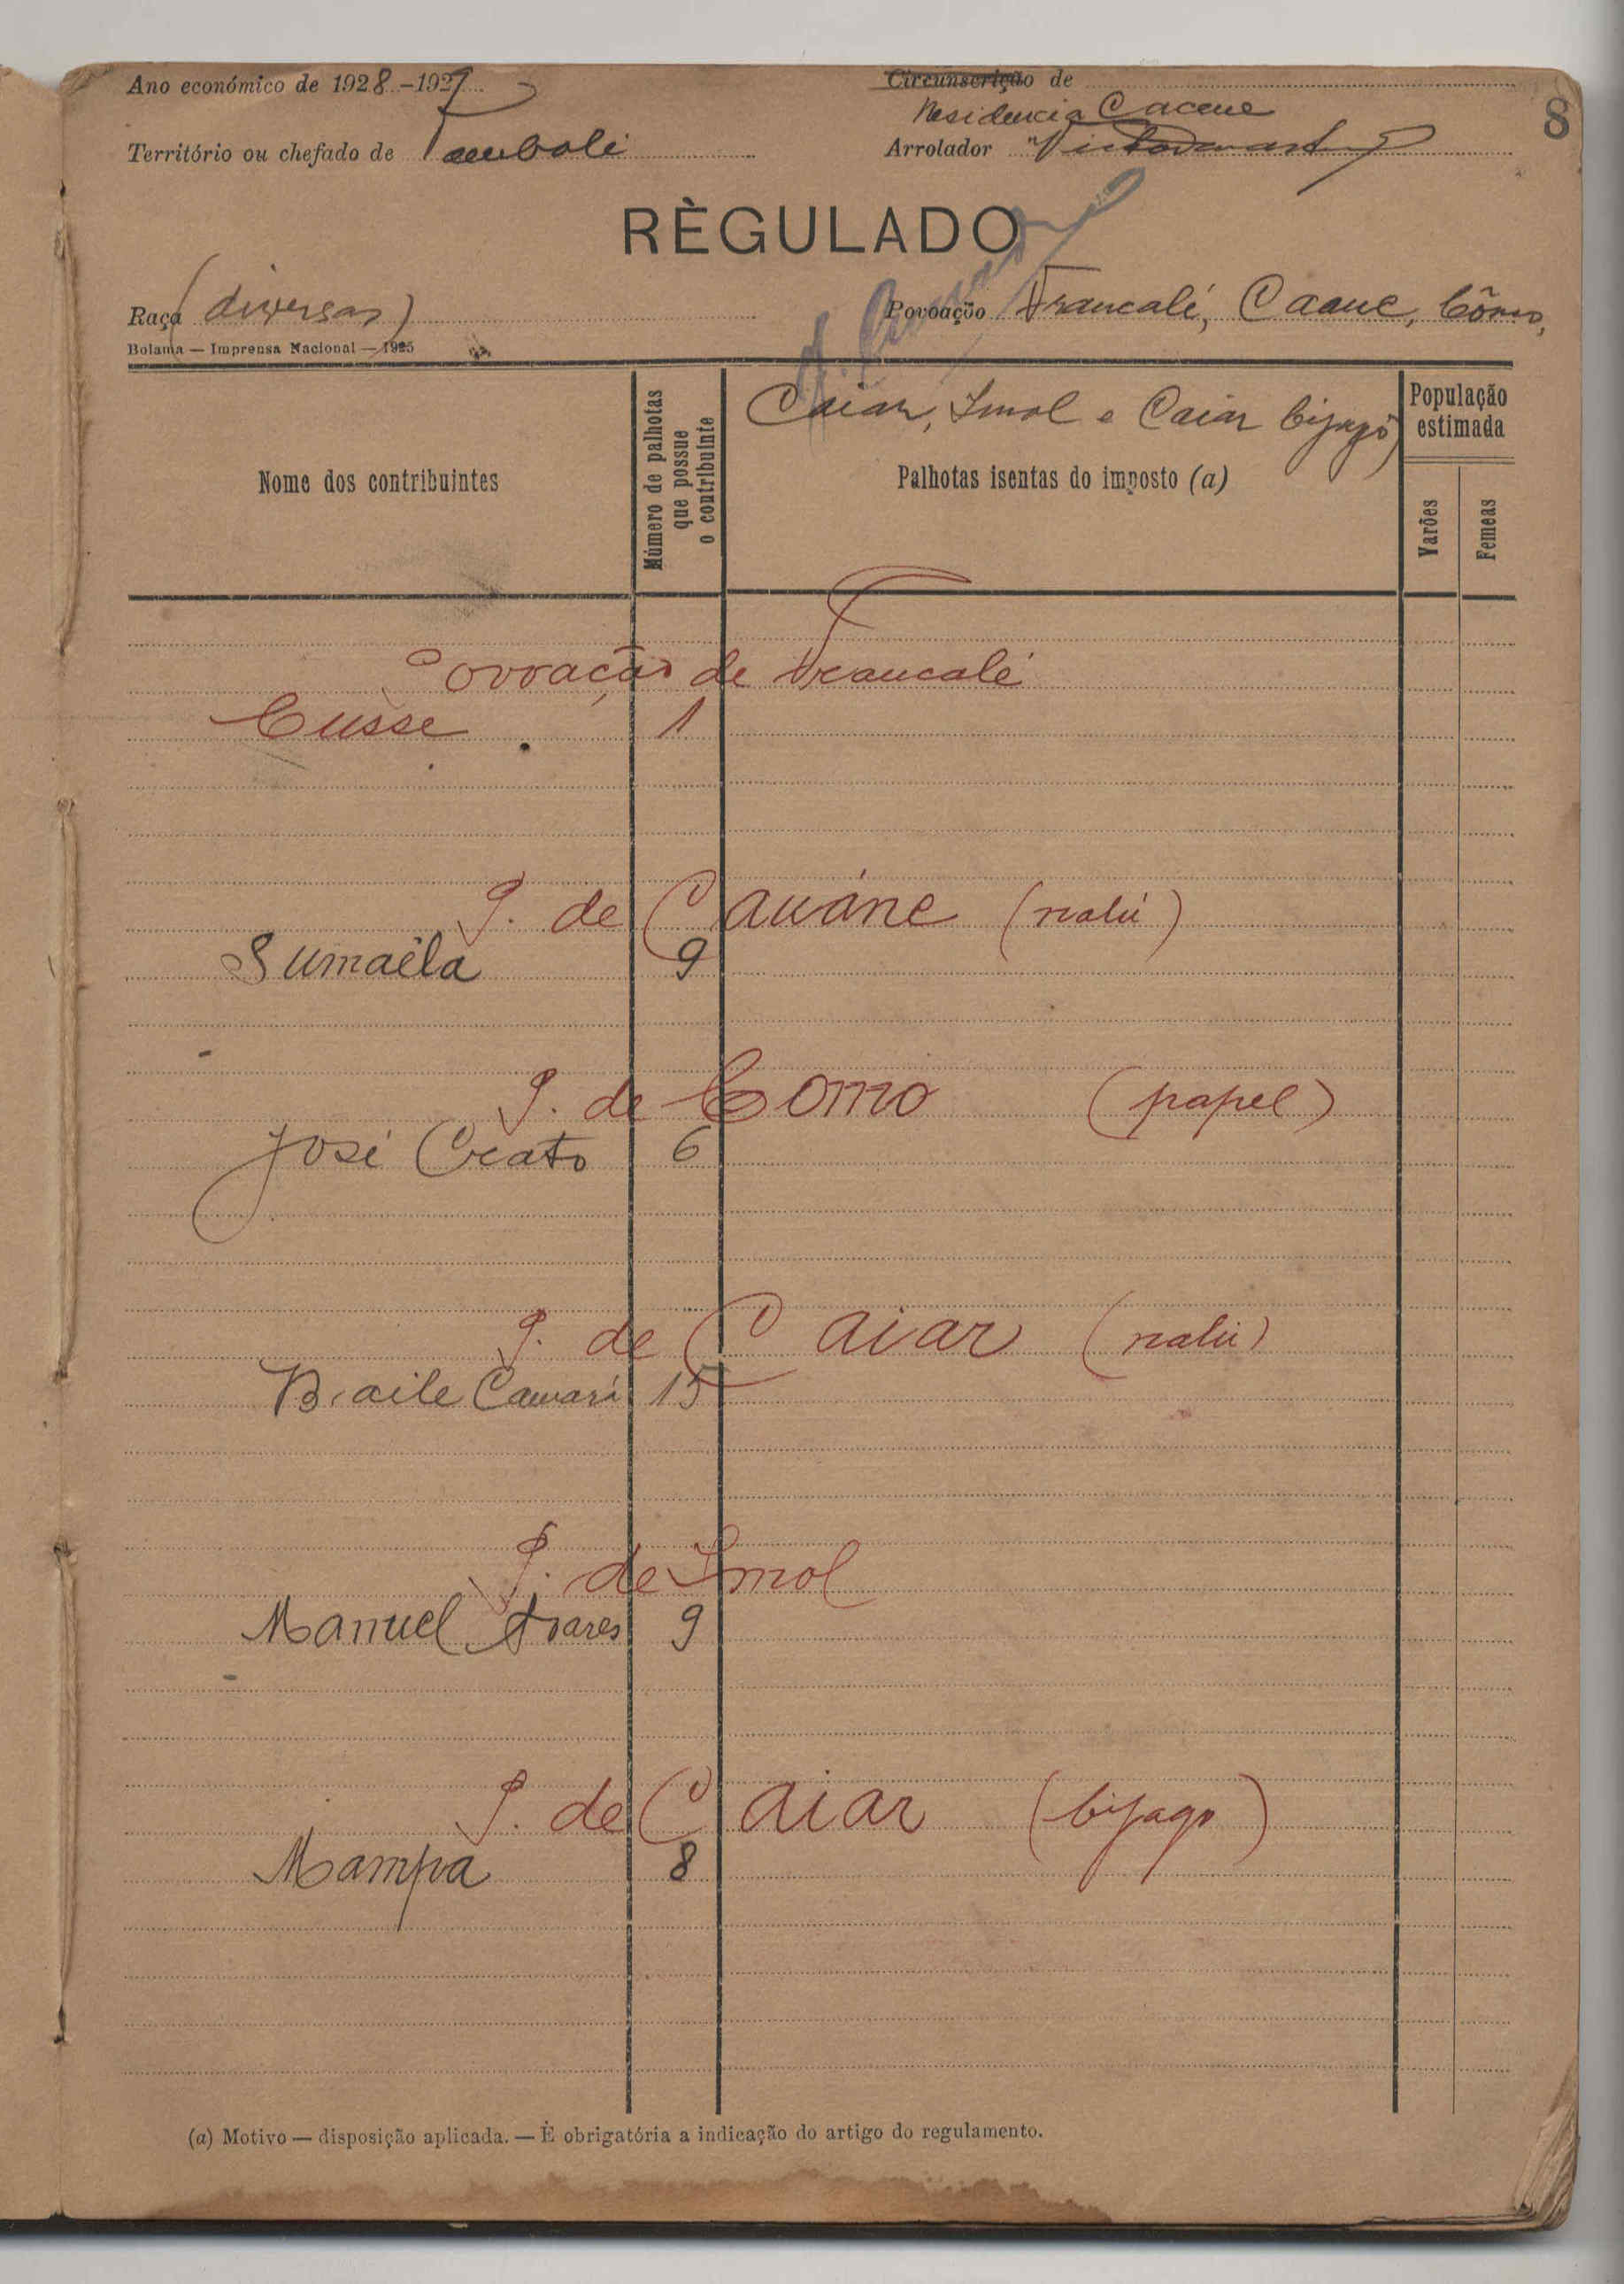 Ano económico de 1928-1929
Circunscrição de
Residencia Cacene
8
Território ou chefado de Tombali
Arrolador
RÈGULADO
Raça (diversas)
Povoação Francalé, Caane, Cômo,
Bolama — Imprensa Nacional — 1925
Caiar, Imol e Caiar bijagó
Nome dos contribuintes
Número de palhotas que possue o contribuinte
Palhotas isentas do imposto (a)
População estimada
Varões
Femeas
Povoação de Francalé
Cusse 1
P. de Cauáne (nalú)
Sumaéla 9
P. de Como (papel)
José Crato 6
P. de Caiar (nalú)
Braile Camará 15
P. de Imol
Manuel Soares 9
P. de Caiar (bijago)
Mampa 8
(a) Motivo — disposição aplicada. — É obrigatória a indicação do artigo do regulamento.